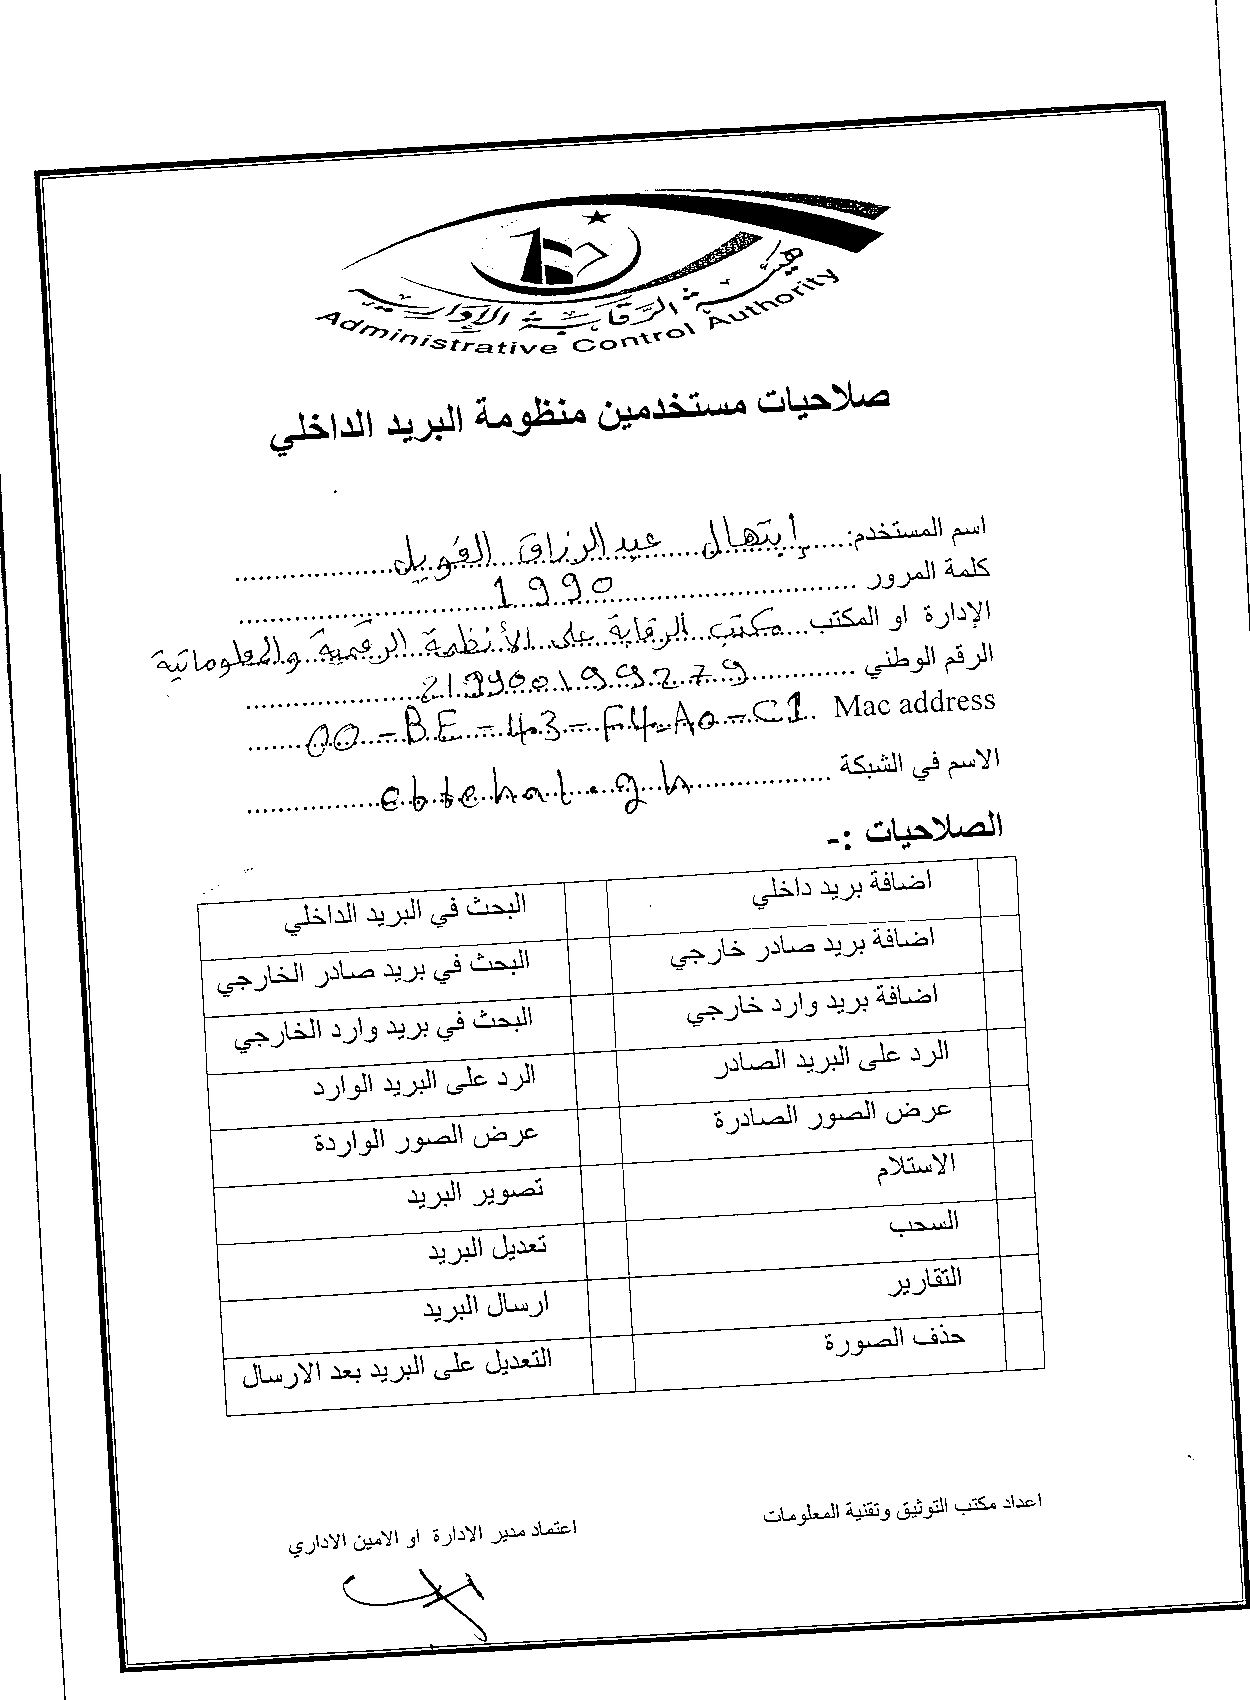 هيئة الرقابة الإدارية
Administrative Control Authority
صلاحيات مستخدمين منظومة البريد الداخلي
اسم المستخدم: إبتهال عبد الرزاق الغويل
كلمة المرور 1990
الإدارة او المكتب مكتب الرقابة على الأنظمة الرقمية والمعلوماتية
الرقم الوطني 219900199279
Mac address 00-BE-43-F4-A0-C1
الاسم في الشبكة ebtehal.gh
الصلاحيات :-
اضافة بريد داخلي البحث في البريد الداخلي
اضافة بريد صادر خارجي البحث في بريد صادر الخارجي
اضافة بريد وارد خارجي البحث في بريد وارد الخارجي
الرد على البريد الصادر الرد على البريد الوارد
عرض الصور الصادرة عرض الصور الواردة
الاستلام تصوير البريد
السحب تعديل البريد
التقارير ارسال البريد
حذف الصورة التعديل على البريد بعد الارسال
اعداد مكتب التوثيق وتقنية المعلومات
اعتماد مدير الادارة او الامين الاداري